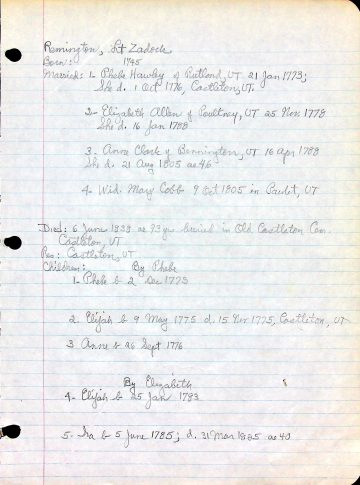 Remington, Lt Zadock
Born: 1745
Married: 1- Phebe Hawley of Rutland, VT 21 Jan 1773;
She d. 1 Oct 1776, Castleton, VT.
2- Elizabeth Allen of Poultney, VT 25 Nov 1778
She d. 16 Jan 1788
3. Anne Clark of Bennington, VT 16 Apr 1788
She d. 21 Aug 1805 ae 46
4. Wid. Mary Cobb 9 Oct 1805 in Pawlet, VT
Died: 6 June 1838 ae 93 yrs buried in Old Castleton Cem
Castleton, VT
Res: Castleton, VT
Children: By Phebe
1. Phebe b 2 Dec 1773
2. Elijah b 9 May 1775 d. 15 Nov 1775, Castleton, VT
3 Anne b 26 Sept 1776
By Elizabeth
4. Elijah b 25 Jan 1783
5. Ira b 5 June 1785; d. 31 Mar 1825 ae 40